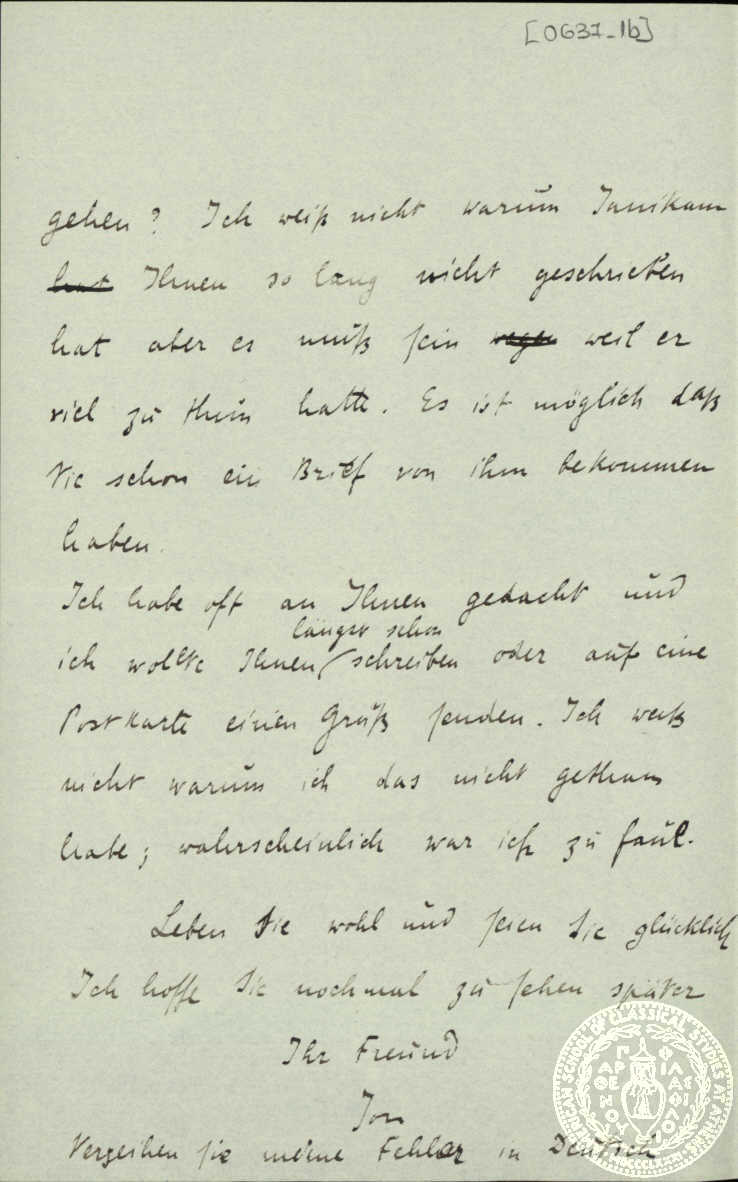 [0637-1b]
gehen? Ich weiß nicht warum Janikam
hat Ihnen so lang nicht geschrieben
hat aber es muß sein wegen weil er
viel zu thun hatte. Es ist möglich daß
Sie schon ein Brief von ihm bekommen
haben.
Ich habe oft an Ihnen gedacht und
längst schon
ich wollte Ihnen schreiben oder auf eine
Postkarte einen Gruß senden. Ich weiß
nicht warum ich das nicht gethan
habe; wahrscheinlich war ich zu faul.
Leben Sie wohl und seien Sie glücklich
Ich hoffe Sie nochmal zu sehen später
Ihr Freund
Jon
Verzeihen sie meine Fehler in Deutsch
AMERICAN SCHOOL OF CLASSICAL STUDIES AT ATHENS
ΠΑΡΘΕΝΟΥ ΦΙΛΑΣ ΦΙΛΟΥ
MDCCCLXXXI